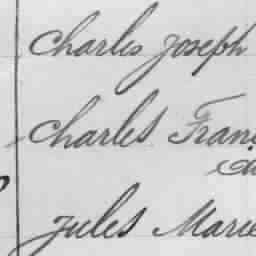 Charles Joseph
Charles Fran
Jules Marie